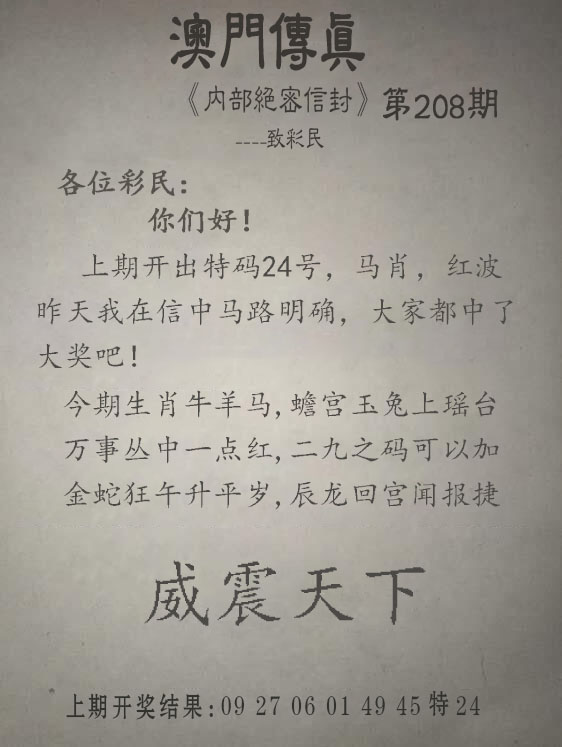 澳門傳眞
《内部絕密信封》第208期
----致彩民
各位彩民：
你们好！
上期开出特码24号，马肖，红波
昨天我在信中马路明确，大家都中了
大奖吧！
今期生肖牛羊马,蟾宫玉兔上瑶台
万事丛中一点红,二九之码可以加
金蛇狂午升平岁,辰龙回宫闻报捷
威震天下
上期开奖结果:09 27 06 01 49 45特24